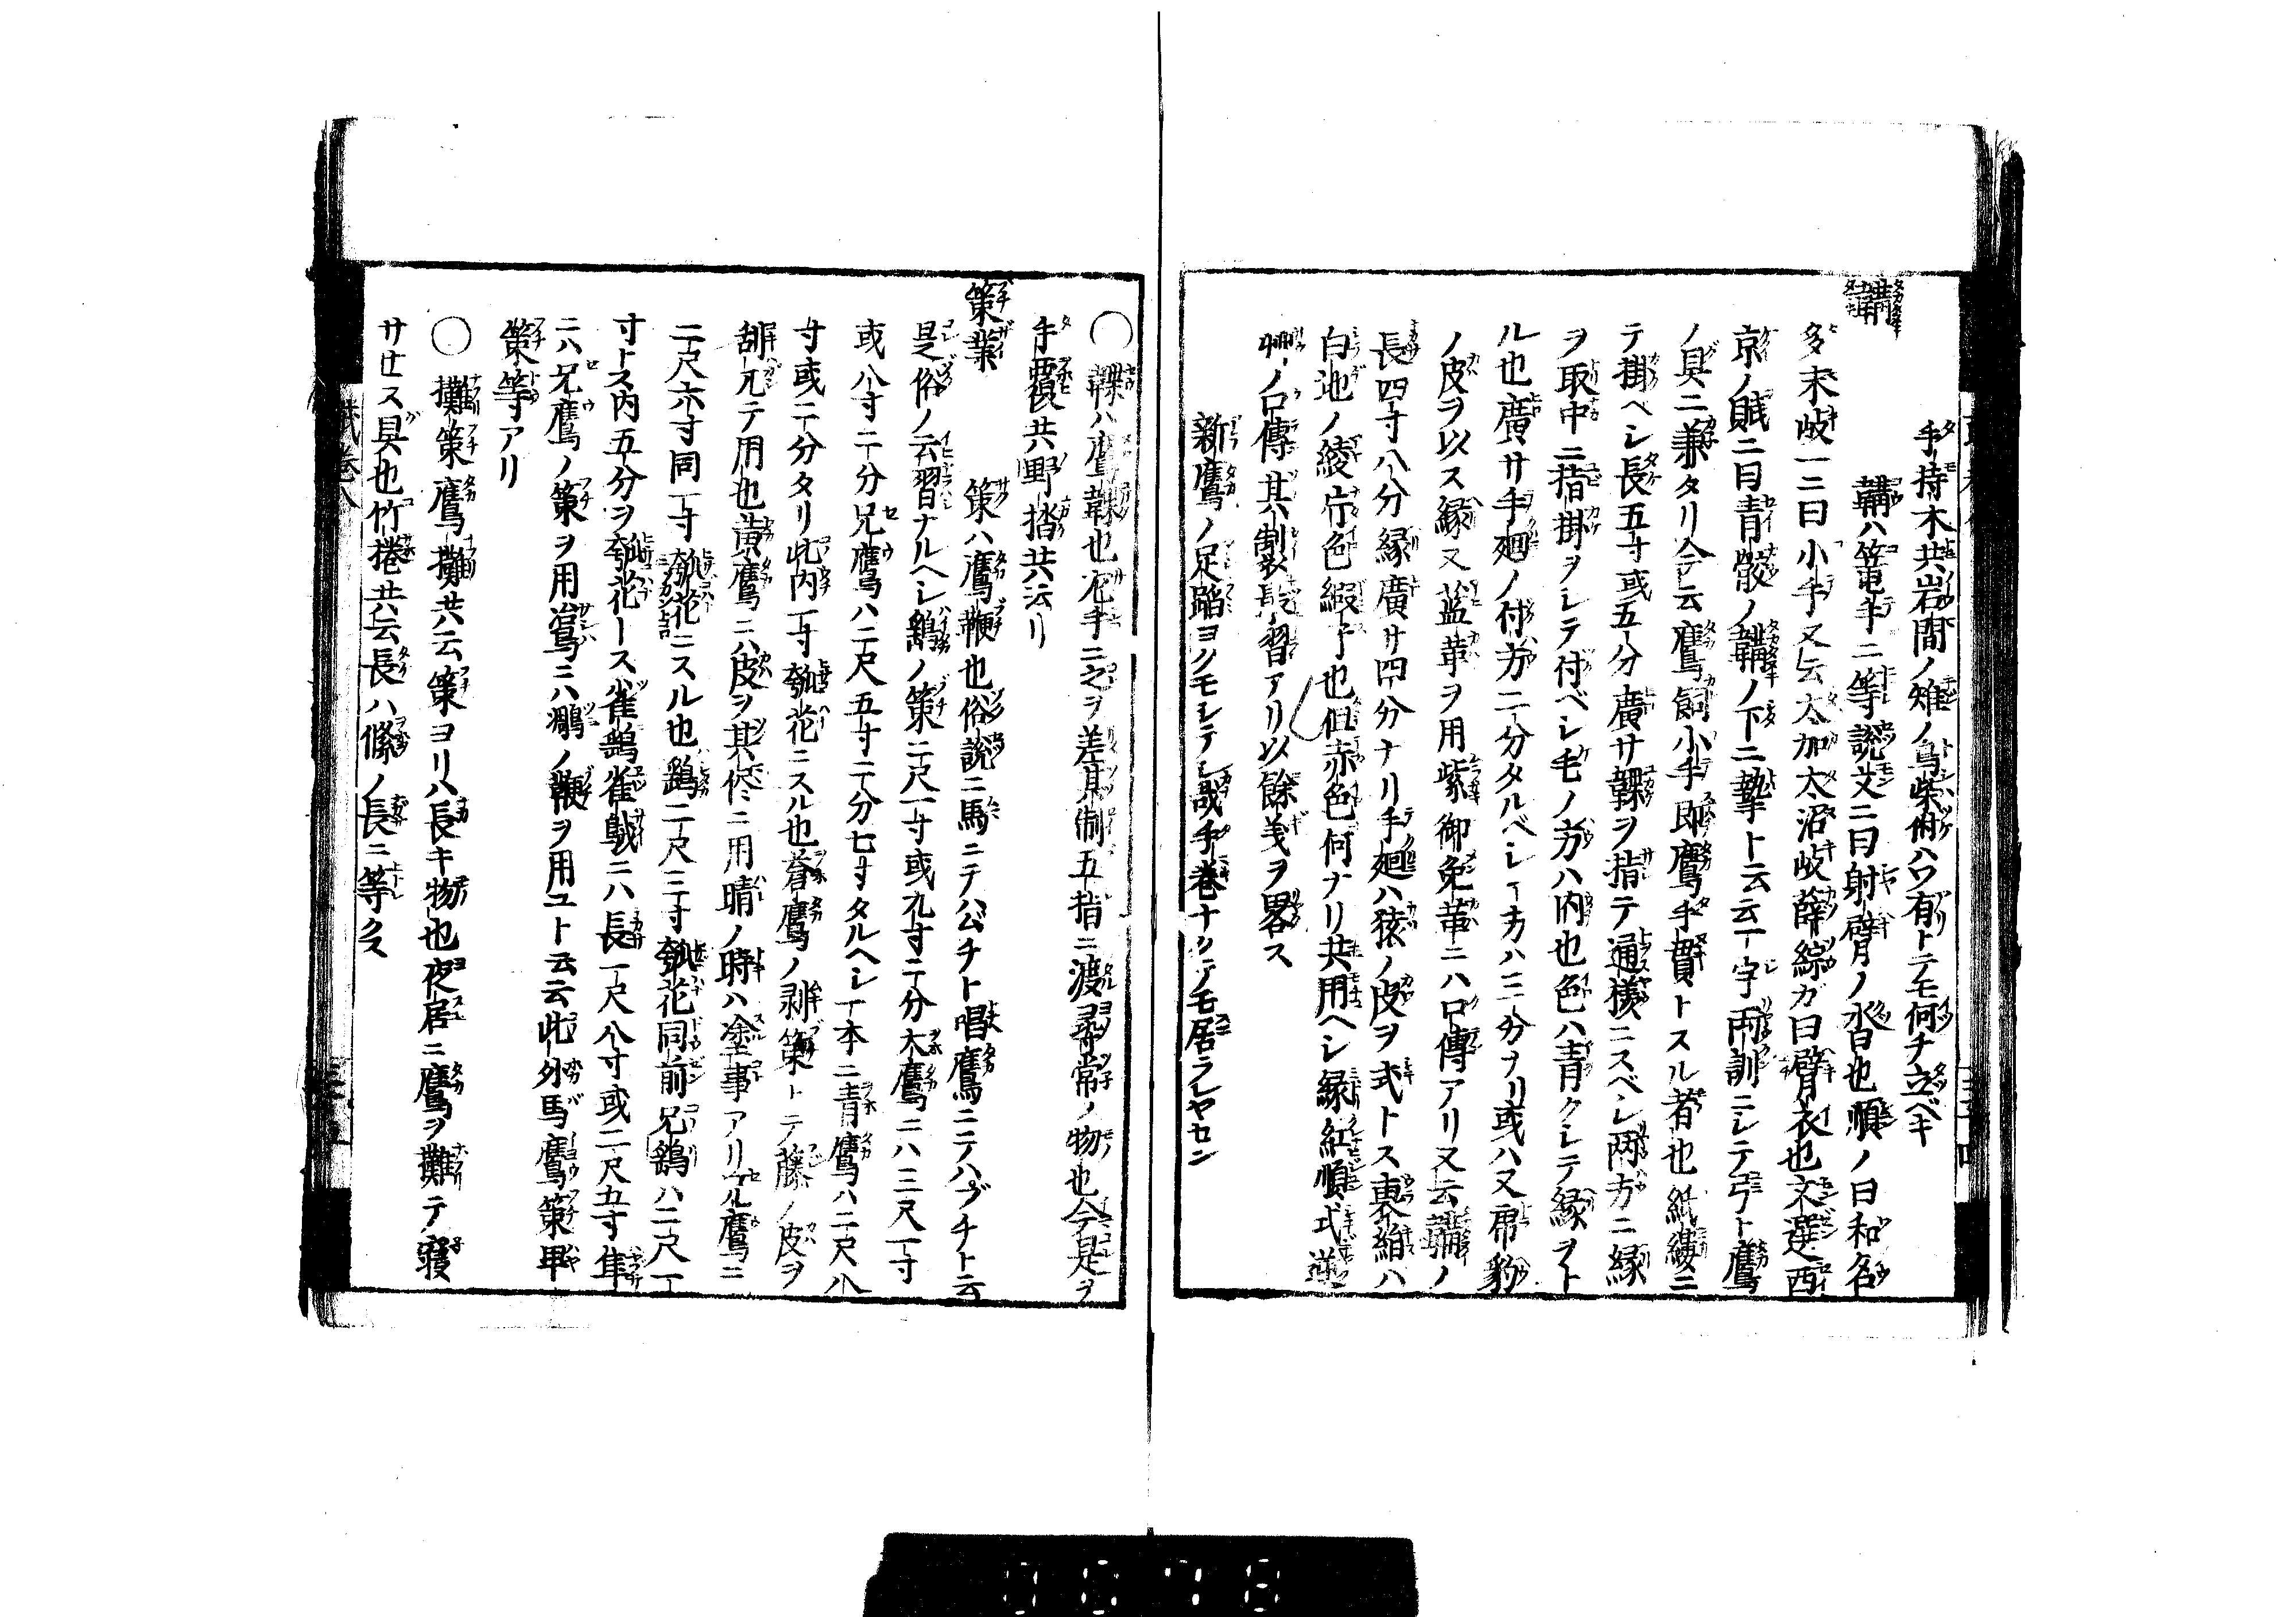 手持木共岩間ノ雉ノ鳥柴附ハワ有トテモ何チ立ベキ
韝
韝ハ篭手ニ等説文ニ曰射臂ノ沓也順ノ曰和名
多末岐一ニ曰小手又云太加太沼岐薛綜ガ曰臂衣也文選西
京ノ賦ニ曰青骹ノ韝ノ下ニ摯ト云云一字両訓ニシテ弓ト鷹
ノ具ニ兼タリ今云鷹飼小手即鷹手貫トスル者也紙縷ニ
テ掛ヘシ長五寸或五分廣サ韘ヲ指テ通様ニスベシ両方ニ縁
ヲ取中ニ指掛ヲシテ付ベシ毛ノ方ハ内也色ハ青クシテ縁ヲト
ル也廣サ手廻ノ付方二分タルベシ一方ハ三分ヲリ或ハ又席豹
ノ皮ヲ以ス縁又藍革ヲ用紫御免革ニハ口傳アリ又云韝ノ
長四寸八分縁廣サ四分ナリ手廻ハ猿ノ皮ヲ式トス裏絹ハ
白地ノ綾片色緞子也但赤色何ナリ共用ヘシ縁紅順式逆
ノ口傳其六制裁長習アリ以餘義ヲ畧ス
新鷹ノ足蹈ヨクモシテシ哉手巻ナクテノモ居ラレヤセン
○韘ハ鷹韘也左手ニ之ヲ差其制五指ニ渡尋常ノ物也今是ヲ
手覆共野沓共云リ
策 策ハ鷹鞭也俗説ニ馬ニテハムチト唱鷹ニテハブチト云
是俗ノ云習ナルヘシ鷂ノ策二尺一寸或九寸二分大鷹ニハ三尺一寸
或八寸二分兄鷹ハ二尺五寸二分七寸タルヘシ一本ニ青鷹ハ二尺八
寸或二分タリ此内一寸瓠花ニスル也蒼鷹ノ剥策トテ藤ノ皮ヲ
用也黄鷹ニハ皮ヲ其侭ニ用晴ノ時ハ塗事アリ兄鷹ニ
二尺六寸同一寸瓠花ニスル也鷂二尺三寸瓠花同前兄鷂ハ二尺一
寸トス内五分ヲ瓠花トス雀鷂雀𪀚ニハ長一尺八寸或二尺五寸隼
ニハ兄鷹ノ策ヲ用ニハ鞭ヲ用ユト云云此外馬鷹策甲
策等アリ
○攤策鷹攤共云策ヨリハ長キ物也夜居ニ鷹ヲ攤テ寝
サセス具也竹捲共云長ハ條ノ長ニ等クス